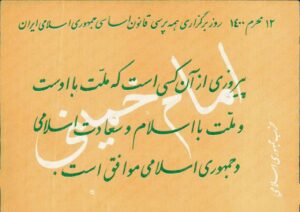 ۱۲ محرم ۱۴۰۰ روز برگزاری همه پرسی قانون اساسی جمهوری اسلامی ایران
پیروزی از آن کسی است که ملّت با اوست
و ملّت با اسلام و سعادت اسلامی
و جمهوری اسلامی موافق است.
امام خمینی
حزب جمهوری اسلامی